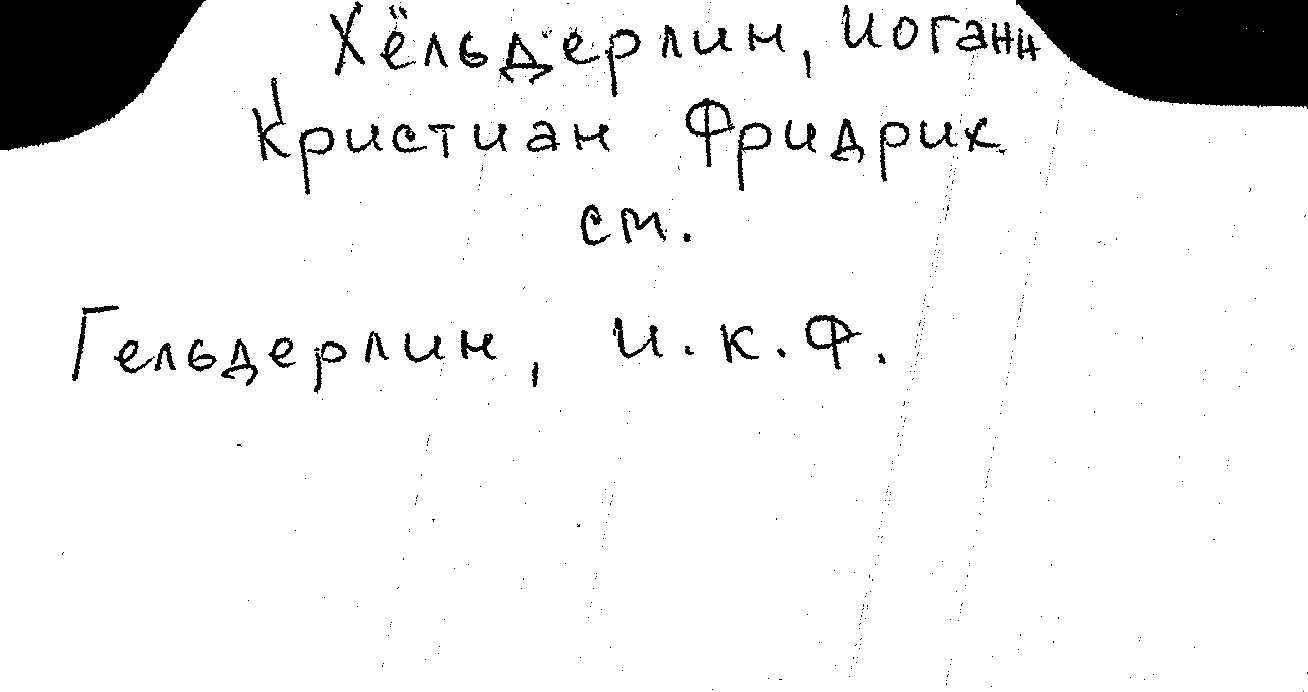 Хёльдерлин, Иоганн
Кристиан Фридрих
см.
Гельдерлин, И.К.Ф.